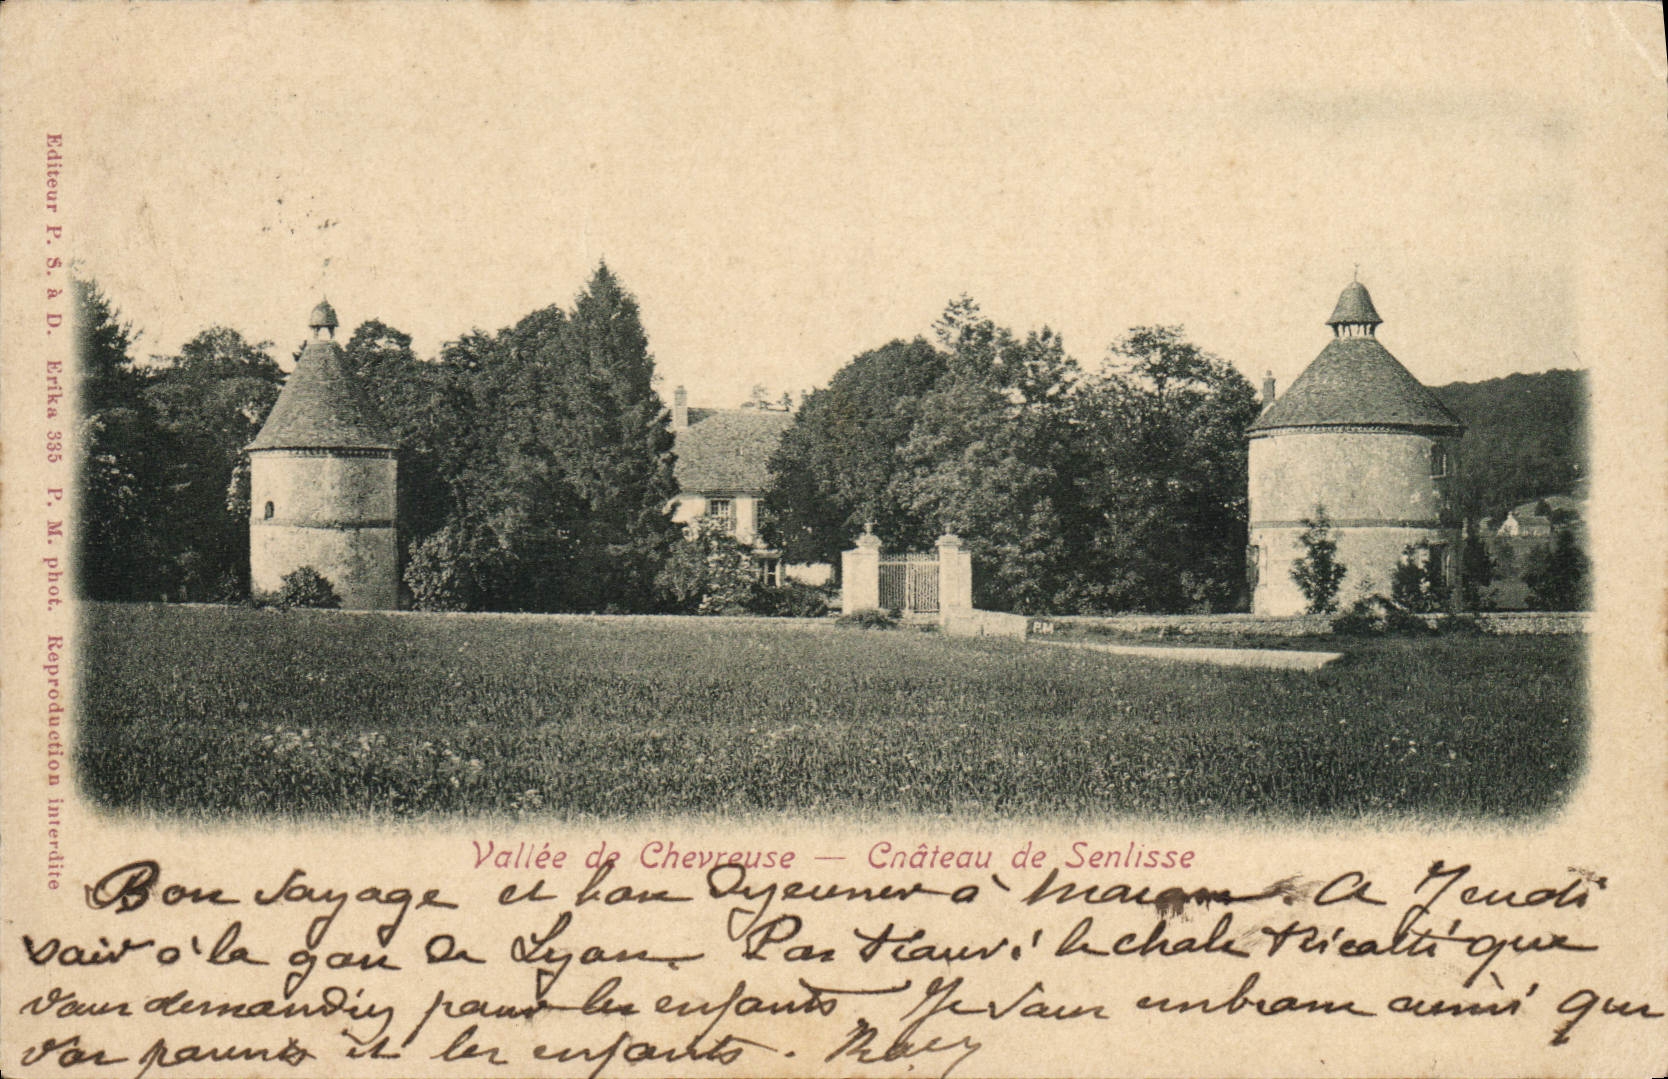 Editeur P. S. à D. Erika 335 P. M. phot. Reproduction interdite
P.M.
Vallée de Chevreuse — Château de Senlisse
Bon voyage et bon Dejeuner à A Jeudi
soir à la gare de Lyon. Pas trouvé le chale que
vous demandiez pour les enfants. Je vous embrasse ainsi que
vos parents et les enfants.